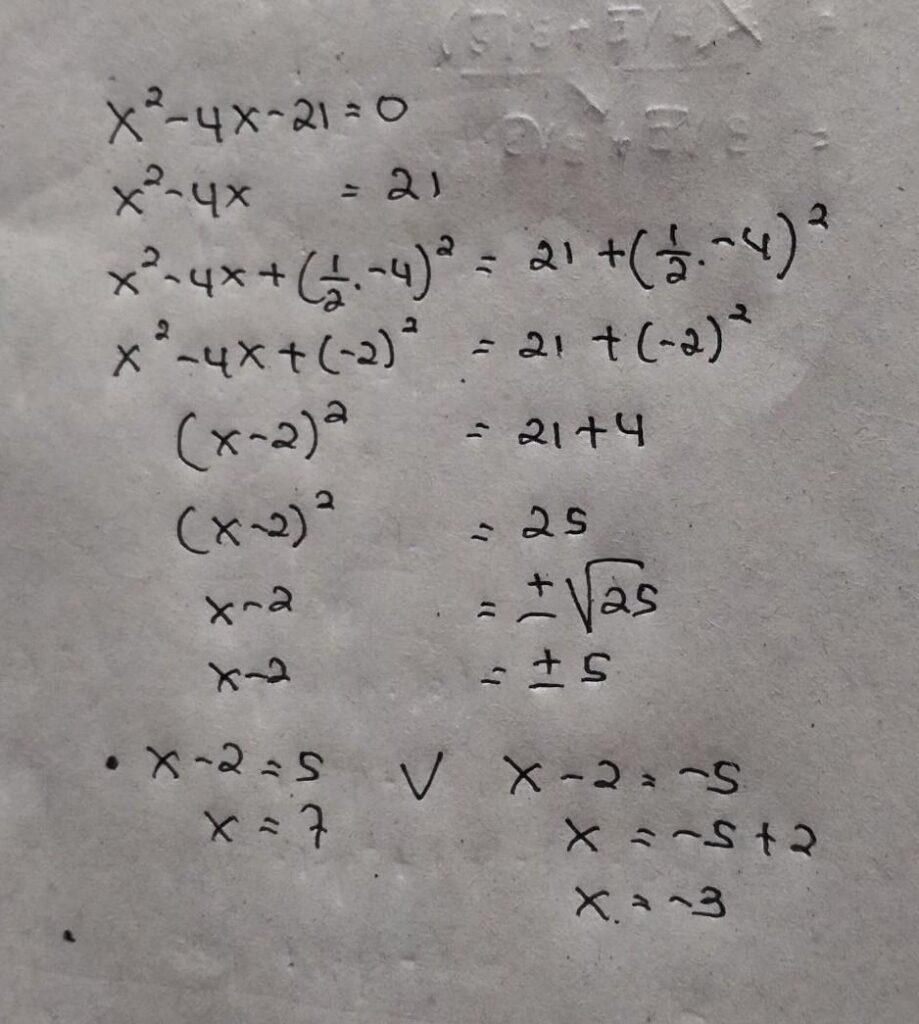 x²-4x-21=0
x²-4x = 21
x²-4x+(1/2.-4)² = 21+(1/2.-4)²
x²-4x+(-2)² = 21+(-2)²
(x-2)² = 21+4
(x-2)² = 25
x-2 = ±√25
x-2 = ±5
• x-2=5 V x-2=-5
x=7 x=-5+2
x=-3